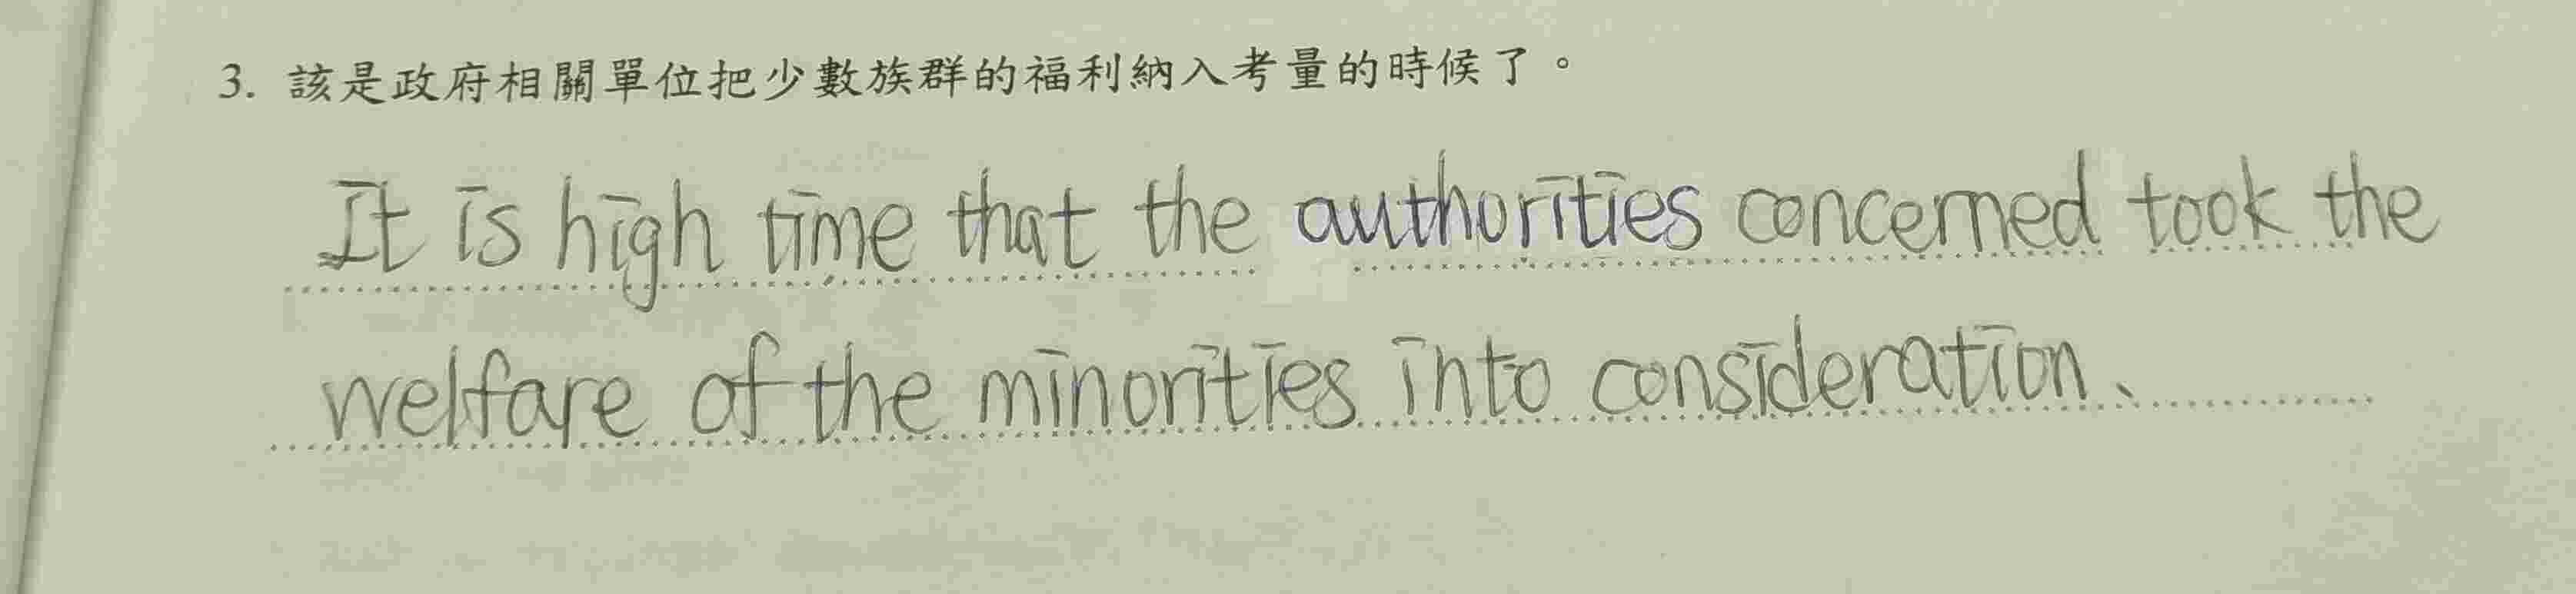 3. 該是政府相關單位把少數族群的福利納入考量的時候了。
It is high time that the authorities concerned took the
welfare of the minorities into consideration.